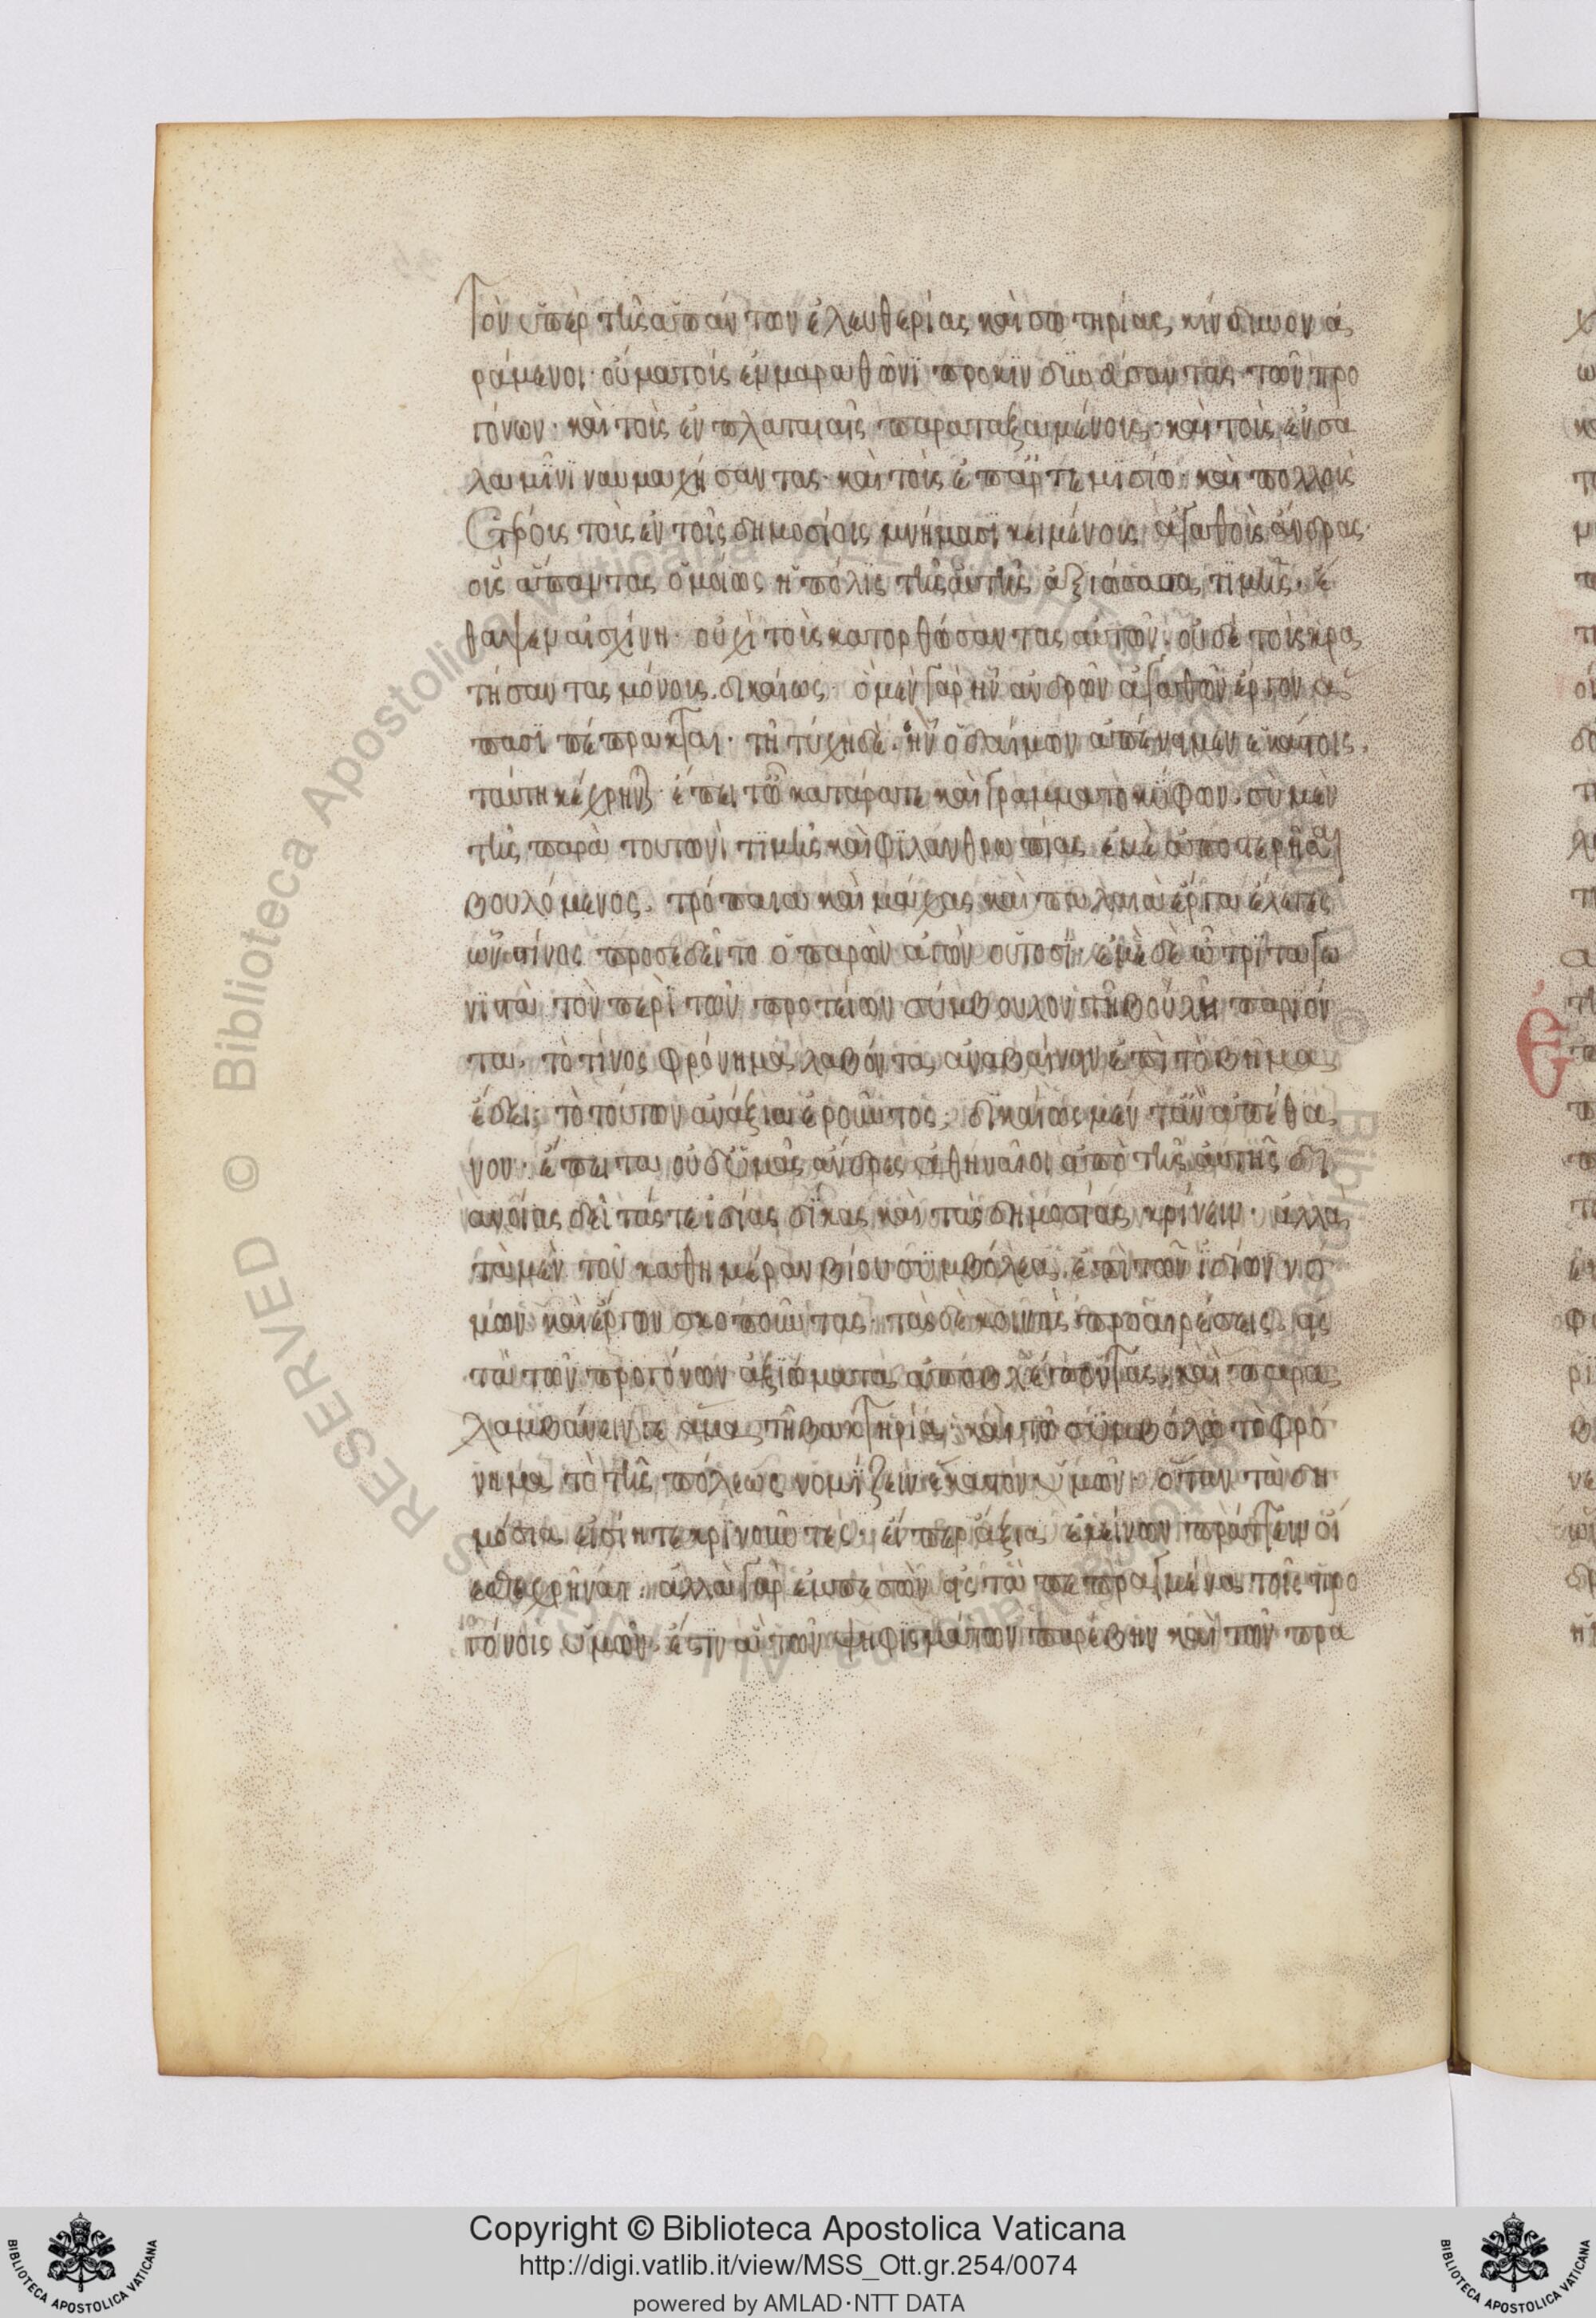 Τὸν ὑπὲρ τῆς ἁπάντων ἐλευθερίας καὶ σωτηρίας κίνδυνον ἀ
ράμενοι· οὐ μὰ τοὺς ἐν μαραθῶνι προκινδυνεύσαντας τῶν προ
γόνων· καὶ τοὺς ἐν πλαταιαῖς παραταξαμένους· καὶ τοὺς ἐν σα
λαμῖνι ναυμαχήσαντας· καὶ τοὺς ἐπ' ἀρτεμισίῳ· καὶ πολλοὺς
ἑτέρους τοὺς ἐν τοῖς δημοσίοις μνήμασι κειμένους ἀγαθοὺς ἄνδρας·
οὓς ἅπαντας ὁμοίως ἡ πόλις τῆς αὐτῆς ἀξιώσασα τιμῆς ἔ
θαψεν αἰσχίνη· οὐχὶ τοὺς κατορθώσαντας αὐτῶν· οὐδὲ τοὺς κρα
τήσαντας μόνους. δικαίως· ὃ μὲν γὰρ ἦν ἀνδρῶν ἀγαθῶν ἔργον ἅ
πασι πέπρακται· τῇ τύχῃ δὲ· ἣν ὁ δαίμων ἀπένειμεν ἑκάστοις.
ταύτῃ κέχρηνται· ἔπειτ' ὦ κατάρατε καὶ γραμματοκύφων. σὺ μὲν
τῆς παρὰ τουτωνὶ τιμῆς καὶ φιλανθρωπίας ἐμὲ ἀποστερῆσαι
βουλόμενος. τρόπαια καὶ μάχας καὶ παλαιὰ ἔργα ἔλεγες
ὧν τίνος προσεδεῖτο ὁ παρὼν ἀγὼν οὑτοσί· ἐμὲ δὲ ὦ τριταγω
νιστὰ τὸν περὶ τῶν πρωτείων σύμβουλον τῇ βουλῇ παριόν
τα. τὸ τίνος φρόνημα λαβόντα ἀναβαίνειν ἐπὶ τὸ βῆμα
ἔδει· τὸ τούτων ἀνάξια ἐροῦντος· δικαίως μέν τἂν ἀπέθα
νον· ἔπειτα οὐδ' ὑμᾶς ἄνδρες ἀθηναῖοι ἀπὸ τῆς αὐτῆς δι
ανοίας δεῖ τάς τε ἰδίας δίκας καὶ τὰς δημοσίας κρίνειν· ἀλλὰ
τὰ μὲν τοῦ καθημέραν βίου συμβόλαια ἐπὶ τῶν ἰδίων νό
μων καὶ ἔργων σκοποῦντας· τὰς δὲ κοινὰς προαιρέσεις εἰς
τὰ τῶν προγόνων ἀξιώματα ἀποβλέποντας· καὶ παρα
λαμβάνειν γε ἅμα τῇ βακτηρίᾳ· καὶ τῷ συμβόλῳ τὸ φρό
νημα τὸ τῆς πόλεως νομίζειν ἕκαστον ὑμῶν· ὅταν τὰ δη
μόσια εἰσίητε κρινοῦντες· εἴπερ ἄξια ἐκείνων πράττειν οἴ
εσθε χρῆναι· ἀλλὰ γὰρ ἐμπεσὼν εἰς τὰ πεπραγμένα τοῖς προ
γόνοις ὑμῶν· ἔστιν ἃ τῶν ψηφισμάτων παρέβην καὶ τῶν πρα
Copyright © Biblioteca Apostolica Vaticana
http://digi.vatlib.it/view/MSS_Ott.gr.254/0074
powered by AMLAD·NTT DATA